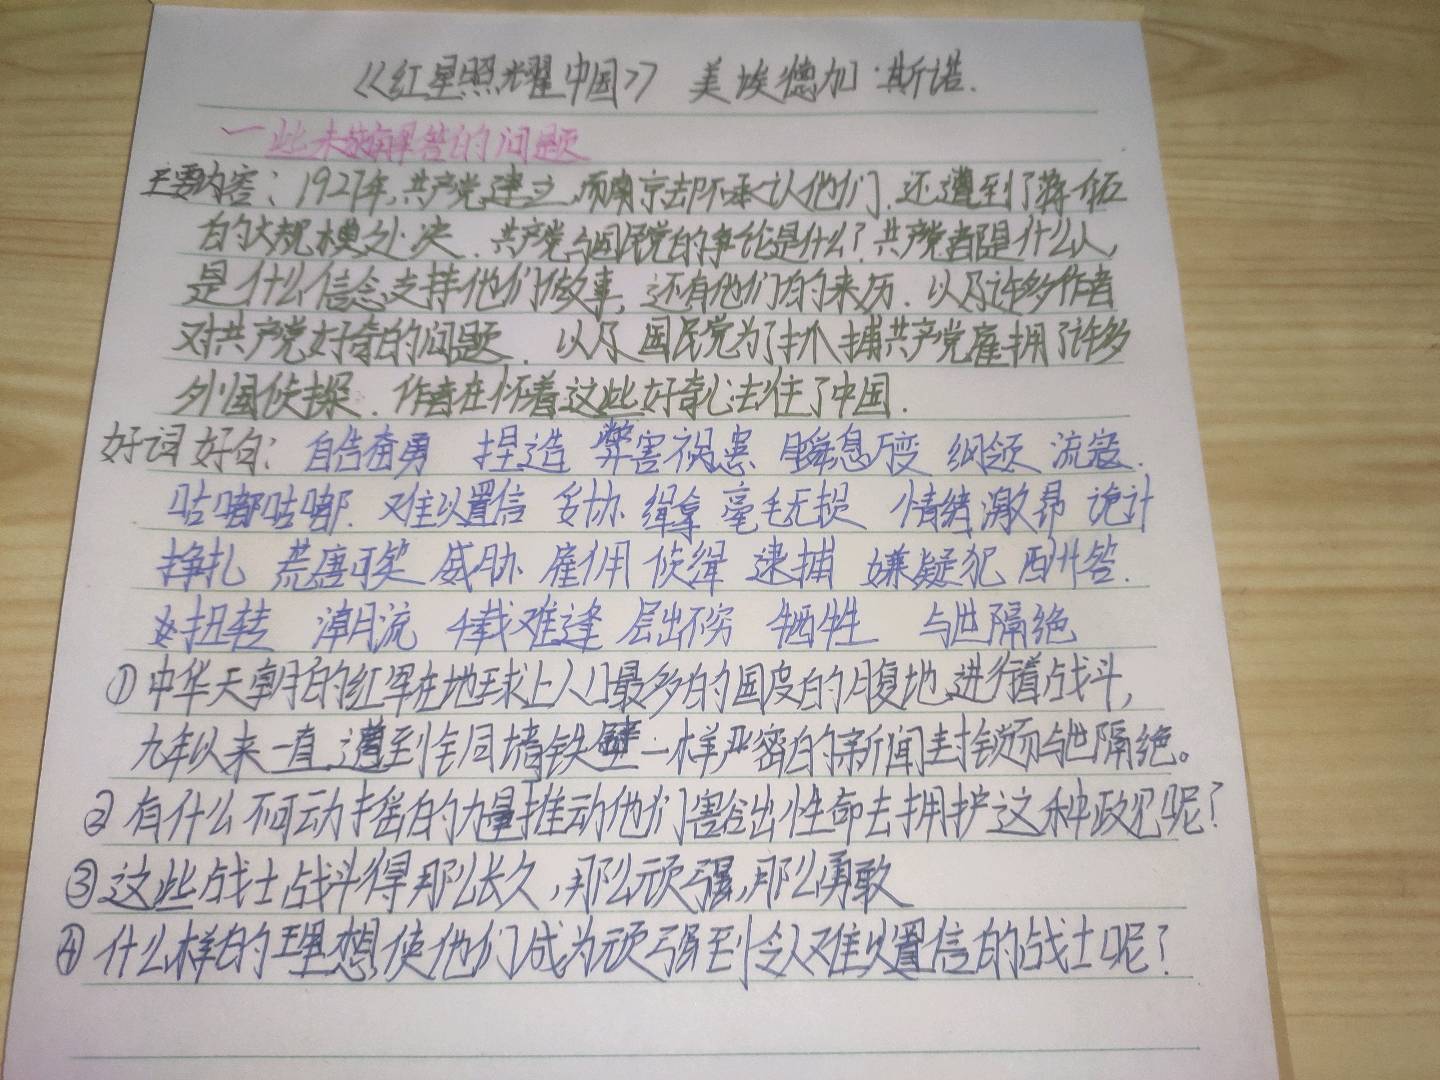 《红星照耀中国》 美 埃德加·斯诺.
一些未被解答的问题
主要内容：1927年,共产党建立,而南京却不承认他们,还遭到了蒋介石
的大规模处决.共产党与国民党的争论是什么?共产党都是什么人,
是什么信念支持他们做事,还有他们的来历.以及许多作者
对共产党好奇的问题.以及国民党为了抓捕共产党雇拥了许多
外国侦探.作者在怀着这些好奇心去往了中国.
好词好句：自告奋勇 捏造 弊害祸患 瞬息万变 纲领 流寇.
咕嘟咕嘟. 难以置信 妥协 缉拿 毫毛无损 情绪激昂 诡计
挣扎 荒唐可笑 威胁 雇佣 侦缉 逮捕 嫌疑犯 酬答.
扭转 潮流 千载难逢 层出不穷 牺牲 与世隔绝
①中华天朝的红军在地球上人口最多的国度的腹地进行着战斗,
九年以来一直遭到铜墙铁壁一样严密的新闻封锁而与世隔绝。
②有什么不可动摇的力量推动他们豁出性命去拥护这种政见呢?
③这些战士战斗得那么长久,那么顽强,那么勇敢
④什么样的理想使他们成为顽强到令人难以置信的战士呢?